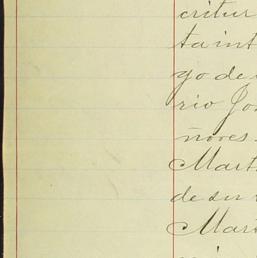 critur
taint
go de
rio Jo
ñores
Mart
de su
Mari